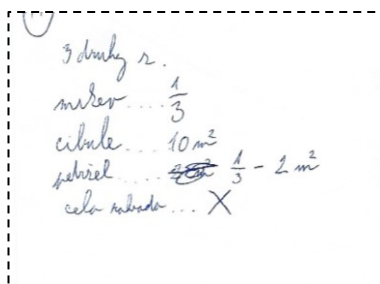 3 druhy z.
mrkev .... 1/3
cibule ... 10 m²
petržel ..... 1/3 - 2 m²
cela zahrada ... X